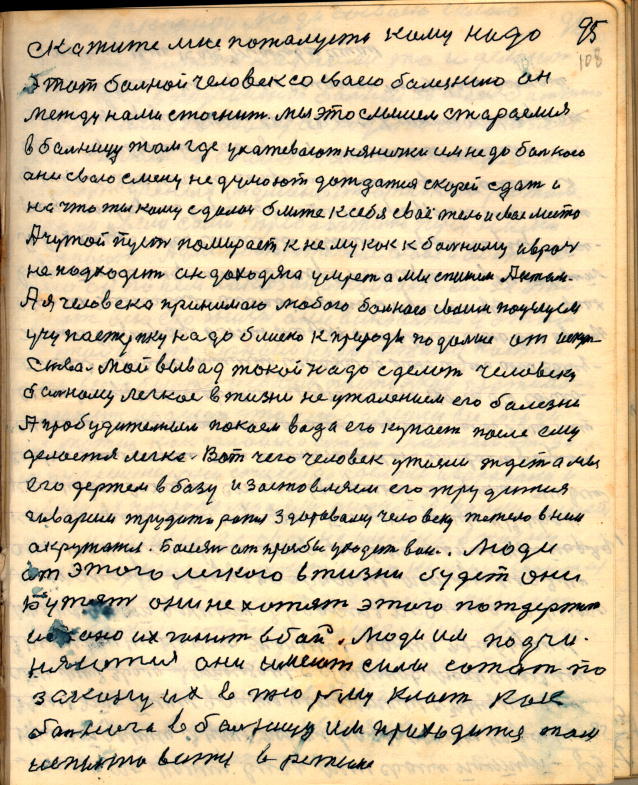 скажите мне пожалуста кому надо 95
108
Этат балной человек со своею балезнию он
между нами стогнит. мы это слышем стараемся
в балницу там где ухажевают нянички им не до балного
ани свою смену не думоют дождатся скорей сдат и
на что ты кому сдалса ближе к себя своё тело и свое место
А чужой пуст помирает к нему как к балному и врач
не подходит он доходяга умрет а мы спишем Актам.
А я человека принимаю любого болнова своим поцелуем
учу пастепенку надо блиско к природы подалше от искус-
ства. Мой вывад такой надо сделат человеку
балному легкое в жизни не ужалением его балезни
А пробудителным покоем вада его купает после ему
делается легко. Вот чего человек у жизни ждет а мы
его держем в базу и заставляем его трудится
гаварим трудит рана здаровому человеку тяжело в ним
окружатся. Балят от прозбы уходет вон. Люди
от этого легкого в жизни будет они
будят они не хотят этого поддержат
их оно их гонит в бой. Люди им подчи-
няются они имеют силы сажат по
закону их в тюрму класт как
болнога в балницу им приходится там
испытоват в режим